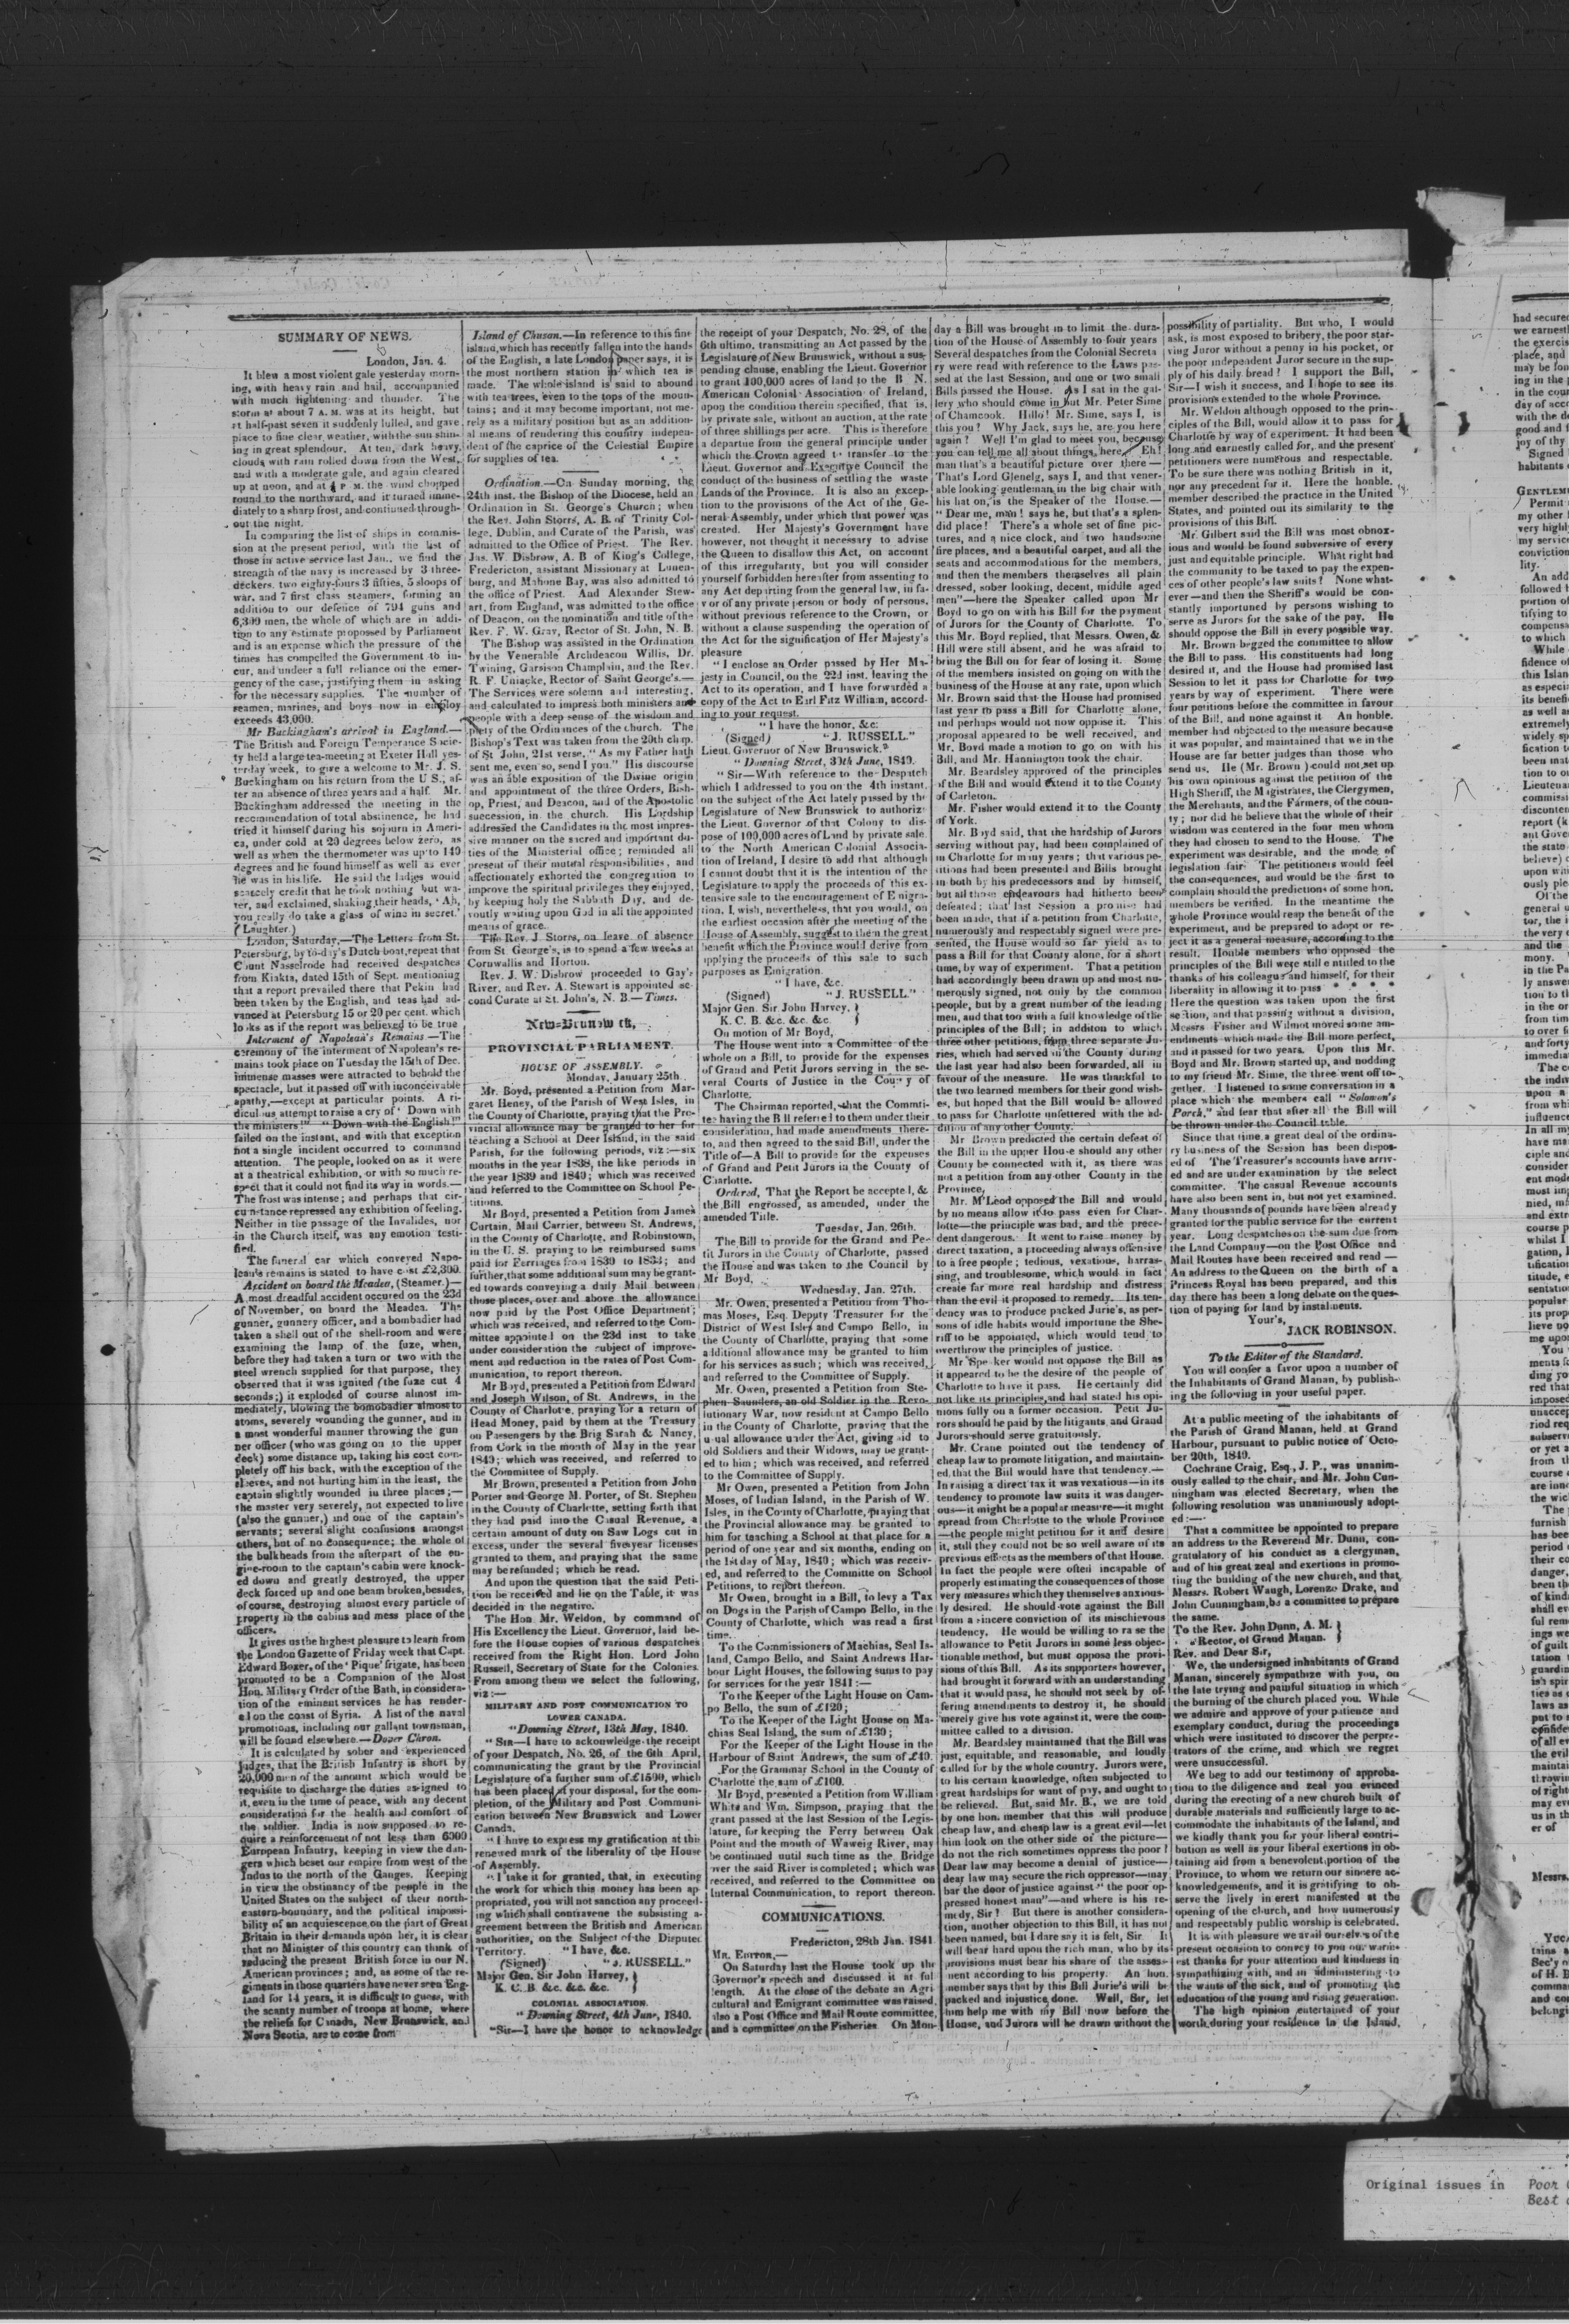 SUMMARY OF NEWS.
London, Jan. 4.
It blew a most violent gale yesterday morn-
ing, with heavy rain and hail, accompanied
with much lightening and thunder. The
storm at about 7 A. M. was at its height, but
at half-past seven it suddenly lulled, and gave
place to fine clear weather, with the sun shin-
ing in great splendour. At ten, dark heavy
clouds with rain rolled down from the West,
and with a moderate gale, and again cleared
up at noon, and at P. M. the wind chopped
round to the northward, and it turned imme-
diately to a sharp frost, and continued through-
out the night.
In comparing the list of ships in commis-
sion at the present period, with the list of
those in active service last Jan., we find the
strength of the navy is increased by 3 three-
deckers, two eighty-fours 3 fifties, 5 sloops of
war, and 7 first class steamers, forming an
addition to our defence of 794 guns and
6,300 men, the whole of which are in addi-
tion to any estimate propossed by Parliament
and is an expense which the pressure of the
times has compelled the Government to in-
cur, and under a full reliance on the emer-
gency of the case, justifying them in asking
for the necessary supplies. The number of
seamen, marines, and boys now in employ
exceeds 43,000.
Mr Buckingham's arrival in England.—
The British and Foreign Temperance Socie-
ty held a large tea-meeting at Exeter Hall yes-
terday week, to give a welcome to Mr. J. S.
Buckingham on his return from the U S., af-
ter an absence of three years and a half. Mr.
Buckingham addressed the meeting in the
recommendation of total abstinence, he had
tried it himself during his sojourn in Ameri-
ca, under cold at 20 degrees below zero, as
well as when the thermometer was up to 140
degrees and he found himself as well as ever
he was in his life. He said the ladies would
scarcely credit that he took nothing but wa-
ter, and exclaimed, shaking their heads, 'Ah,
you really do take a glass of wine in secret.'
(Laughter.)
London, Saturday.—The Letters from St.
Petersburg, by to-day's Dutch boat, repeat that
Count Nasselrode had received despatches
from Kiakta, dated 15th of Sept. mentioning
that a report prevailed there that Pekin had
been taken by the English, and teas had ad-
vanced at Petersburg 15 or 20 per cent. which
looks as if the report was believed to be true
Interment of Napolean's Remains —The
ceremony of the interment of Napolean's re-
mains took place on Tuesday the 15th of Dec.
immense masses were attracted to behold the
spectacle, but it passed off with inconceivable
apathy,—except at particular points. A ri-
diculous attempt to raise a cry of 'Down with
the ministers!" "Down with the English!"
failed on the instant, and with that exception
not a single incident occurred to command
attention. The people, looked on as it were
at a theatrical exhibition, or with so much re-
spect that it could not find its way in words.—
The frost was intense; and perhaps that cir-
cumstance repressed any exhibition of feeling.
Neither in the passage of the Invalides, nor
in the Church itself, was any emotion testi-
fied.
The funeral car which conveyed Napo-
lean's remains is stated to have cost £2,300.
Accident on board the Meadea, (Steamer.)—
A most dreadful accident occured on the 23d
of November, on board the Meadea. The
gunner, gunnery officer, and a bombadier had
taken a shell out of the shell-room and were
examining the lamp of the fuze, when,
before they had taken a turn or two with the
steel wrench supplied for that purpose, they
observed that it was ignited (the fuze cut 4
seconds;) it exploded of course almost im-
mediately, blowing the bomobadier almost to
atoms, severely wounding the gunner, and in
a most wonderful manner throwing the gun
ner officer (who was going on to the upper
deck) some distance up, taking his coat com-
pletely off his back, with the exception of the
sleeves, and not hurting him in the least, the
captain slightly wounded in three places;—
the master very severely, not expected to live
(also the gunner,) and one of the captain's
servants; several slight confusions amongst
others, but of no consequence; the whole of
the bulkheads from the afterpart of the en-
gine-room to the captain's cabin were knock-
ed down and greatly destroyed, the upper
deck forced up and one beam broken, besides,
of course, destroying almost every particle of
property in the cabins and mess place of the
officers.
It gives us the highest pleasure to learn from
the London Gazette of Friday week that Capt.
Edward Boxer, of the 'Pique' frigate, has been
promoted to be a Companion of the Most
Hon. Military Order of the Bath, in considera-
tion of the eminent services he has render-
ed on the coast of Syria. A list of the naval
promotions, including our gallant townsman,
will be found elsewhere.—Dover Chron.
It is calculated by sober and experienced
judges, that the British Infantry is short by
20,000 men of the amount which would be
requisite to discharge the duties assigned to
it, even in the time of peace, with any decent
consideration for the health and comfort of
the soldier. India is now supposed to re-
quire a reinforcement of not less than 6000
European Infantry, keeping in view the dan-
gers which beset our empire from west of the
Indus to the north of the Ganges. Keeping
in view the obstinancy of the people in the
United States on the subject of their north-
eastern-boundary, and the political impossi-
bility of an acquiescence on the part of Great
Britain in their demands upon her, it is clear
that no Minister of this country can think of
reducing the present British force in our N.
American provinces; and, as some of the re-
giments in those quarters have never seen Eng-
land for 14 years, it is difficult to guess, with
the scanty number of troops at home, where
the reliefs for Canada, New Brunswick, and
Nova Scotia, are to come from
Island of Chusan.—In reference to this fine
island, which has recently fallen into the hands
of the English, a late London paper says, it is
the most northern station in which tea is
made. The whole island is said to abound
with tea trees, even to the tops of the moun-
tains; and it may become important, not me-
rely as a military position but as an addition-
al means of rendering this country indepen-
dent of the caprice of the Celestial Empire
for supplies of tea.
Ordination.—On Sunday morning, the
24th inst. the Bishop of the Diocese, held an
Ordination in St. George's Church; when
the Rev. John Storrs, A. B. of Trinity Col-
lege, Dublin, and Curate of the Parish, was
admitted to the Office of Priest. The Rev.
Jas. W. Disbrow, A. B of King's College,
Fredericton, assistant Missionary at Lunen-
burg, and Mahone Bay, was also admitted to
the office of Priest. And Alexander Stew-
art, from England, was admitted to the office
of Deacon, on the nomination and title of the
Rev. F. W. Gray, Rector of St. John, N. B.
The Bishop was assisted in the Ordination
by the Venerable Archdeacon Willis, Dr.
Twining, Garsison Champlain, and the Rev.
R. F. Uniacke, Rector of Saint George's.—
The Services were solemn and interesting,
and calculated to impress both ministers and
people with a deep sense of the wisdom and
piety of the Ordinances of the church. The
Bishop's Text was taken from the 20th chap.
of St John, 21st verse, "As my Father hath
sent me, even so, send I you." His discourse
was an able exposition of the Divine origin
and appointment of the three Orders, Bish-
op, Priest, and Deacon, and of the Apostolic
succession, in the church. His Lordship
addressed the Candidates in the most impres-
sive manner on the sacred and important du-
ties of the Ministerial office; reminded all
present of their mutual responsibilities, and
affectionately exhorted the congregation to
improve the spiritual privileges they enjoyed,
by keeping holy the Sabbath Day, and de-
voutly waiting upon God in all the appointed
means of grace.
The Rev. J Storrs, on leave of absence
from St George's, is to spend a few weeks at
Cornwallis and Horton.
Rev. J. W. Disbrow proceeded to Gay's
River, and Rev. A. Stewart is appointed se-
cond Curate at St. John's, N. B.—Times.
New-Brunswick,
PROVINCIAL PARLIAMENT.
HOUSE OF ASSEMBLY.
Monday, January 25th.
Mr. Boyd, presented a Petition from Mar-
garet Heney, of the Parish of West Isles, in
the County of Charlotte, praying that the Pro-
vincial allowance may be granted to her for
teaching a School at Deer Island, in the said
Parish, for the following periods, viz:—six
months in the year 1838, the like periods in
the year 1839 and 1840; which was received
and referred to the Committee on School Pe-
titions.
Mr Boyd, presented a Petition from James
Curtain, Mail Carrier, between St. Andrews,
in the County of Charlotte, and Robinstown,
in the U. S. praying to be reimbursed sums
paid for Ferriages from 1830 to 1834; and
further, that some additional sum may be grant-
ed towards conveying a daily Mail between
those places, over and above the allowance
now paid by the Post Office Department;
which was received, and referred to the Com-
mittee appointed on the 23d inst to take
under consideration the subject of improve-
ment and reduction in the rates of Post Com-
munication, to report thereon.
Mr Boyd, presented a Petition from Edward
and Joseph Wilson, of St. Andrews, in the
County of Charlotte, praying for a return of
Head Money, paid by them at the Treasury
on Passengers by the Brig Sarah & Nancy,
from Cork in the month of May in the year
1840; which was received, and referred to
the Committee of Supply.
Mr Brown, presented a Petition from John
Porter and George M. Porter, of St. Stephen
in the County of Charlotte, setting forth that
they had paid into the Casual Revenue, a
certain amount of duty on Saw Logs cut in
excess, under the several five year licenses
granted to them, and praying that the same
may be refunded; which be read.
And upon the question that the said Peti-
tion be received and lie on the Table, it was
decided in the negative.
The Hon Mr. Weldon, by command of
His Excellency the Lieut. Governor, laid be-
fore the House copies of various despatches
received from the Right Hon. Lord John
Russell, Secretary of State for the Colonies.
From among them we select the following,
viz:—
MILITARY AND POST COMMUNICATION TO
LOWER CANADA.
"Downing Street, 13th May, 1840.
"Sir—I have to acknowledge the receipt
of your Despatch, No. 26, of the 6th April,
communicating the grant by the Provincial
Legislature of a further sum of £1500, which
has been placed at your disposal, for the com-
pletion, of the Military and Post Communi-
cation between New Brunswick and Lower
Canada.
"I have to express my gratification at this
renewed mark of the liberality of the House
of Assembly.
"I take it for granted, that, in executing
the work for which this money has been ap-
propriated, you will not sanction any proceed-
ing which shall contravene the subsisting a-
greement between the British and American
authorities, on the Subject of the Disputed
Territory. "I have, &c.
(Signed) "J. RUSSELL."
Major Gen. Sir John Harvey,
K. C. B. &c. &c. &c.
COLONIAL ASSOCIATION.
"Downing Street, 4th June, 1840.
"Sir—I have the honor to acknowledge
the receipt of your Despatch, No. 28, of the
6th ultimo, transmitting an Act passed by the
Legislature of New Brunswick, without a sus-
pending clause, enabling the Lieut. Governor
to grant 100,000 acres of land to the B N.
American Colonial Association of Ireland,
upon the condition therein specified, that is,
by private sale, without an auction, at the rate
of three shillings per acre. This is therefore
a departue from the general principle under
which the Crown agreed to transfer to the
Lieut. Governor and Executive Council the
conduct of the business of settling the waste
Lands of the Province. It is also an excep-
tion to the provisions of the Act of the Ge-
neral Assembly, under which that power was
created. Her Majesty's Government have
however, not thought it necessary to advise
the Queen to disallow this Act, on account
of this irregularity, but you will consider
yourself forbidden hereafter from assenting to
any Act departing from the general law, in fa-
vor of any private person or body of persons,
without previous reference to the Crown, or
without a clause suspending the operation of
the Act for the signification of Her Majesty's
pleasure
"I enclose an Order passed by Her Ma-
jesty in Council, on the 22d inst. leaving the
Act to its operation, and I have forwarded a
copy of the Act to Earl Fitz William, accord-
ing to your request.
"I have the honor, &c:
(Signed) "J. RUSSELL."
Lieut. Governor of New Brunswick."
"Downing Street, 30th June, 1840.
"Sir—With reference to the Despatch
which I addressed to you on the 4th instant,
on the subject of the Act lately passed by the
Legislature of New Brunswick to authoriz
the Lieut. Governor of that Colony to dis-
pose of 100,000 acres of Land by private sale.
to the North American Colonial Associa-
tion of Ireland, I desire to add that although
I cannot doubt that it is the intention of the
Legislature to apply the proceeds of this ex-
tensive sale to the encouragement of Emigra-
tion, I, wish, nevertheless, that you would, on
the earliest occasion after the meeting of the
House of Assembly, suggest to them the great
benefit which the Province would derive from
applying the proceeds of this sale to such
purposes as Emigration.
"I have, &c.
(Signed) "J. RUSSELL."
Major Gen. Sir John Harvey,
K. C. B. &c. &c. &c.
On motion of Mr Boyd,
The House went into a Committee of the
whole on a Bill, to provide for the expenses
of Grand and Petit Jurors serving in the se-
veral Courts of Justice in the County of
Charlotte.
The Chairman reported, that the Commit-
tee having the Bill referred to them under their
consideration, had made amendments there-
to, and then agreed to the said Bill, under the
Title of—A Bill to provide for the expenses
of Grand and Petit Jurors in the County of
Charlotte.
Ordered, That the Report be accepted, &
the Bill engrossed, as amended, under the
amended Title.
Tuesday, Jan. 26th.
The Bill to provide for the Grand and Pe-
tit Jurors in the County of Charlotte, passed
the House and was taken to the Council by
Mr Boyd,
Wednesday, Jan. 27th.
Mr. Owen, presented a Petition from Tho-
mas Moses, Esq. Deputy Treasurer for the
District of West Isles and Campo Bello, in
the County of Charlotte, praying that some
additional allowance may be granted to him
for his services as such; which was received,
and referred to the Committee of Supply.
Mr. Owen, presented a Petition from Ste-
phen Saunders, an old Soldier in the Revo-
lutionary War, now resident at Campo Bello
in the County of Charlotte, praying that the
usual allowance under the Act, giving aid to
old Soldiers and their Widows, may be grant-
ed to him; which was received, and referred
to the Committee of Supply.
Mr Owen, presented a Petition from John
Moses, of Indian Island, in the Parish of W.
Isles, in the County of Charlotte, praying that
the Provincial allowance may be granted to
him for teaching a School at that place for a
period of one year and six months, ending on
the 1st day of May, 1840; which was receiv-
ed, and referred to the Committe on School
Petitions, to report thereon.
Mr Owen, brought in a Bill, to levy a Tax
on Dogs in the Parish of Campo Bello, in the
County of Charlotte, which was read a first
time.
To the Commissioners of Machias, Seal Is-
land, Campo Bello, and Saint Andrews Har-
bour Light Houses, the following sums to pay
for services for the year 1841:—
To the Keeper of the Light House on Cam-
po Bello, the sum of £120;
To the Keeper of the Light House on Ma-
chias Seal Island, the sum of £130;
For the Keeper of the Light House in the
Harbour of Saint Andrews, the sum of £40.
For the Grammar School in the County of
Charlotte the sum of £100.
Mr Boyd, presented a Petition from William
White and Wm. Simpson, praying that the
grant passed at the last Session of the Legis-
lature, for keeping the Ferry between Oak
Point and the mouth of Waweig River, may
be continued until such time as the Bridge
over the said River is completed; which was
received, and referred to the Committee on
Internal Communication, to report thereon.
COMMUNICATIONS.
Fredericton, 28th Jan. 1841.
Mr. Editor,—
On Saturday last the House took up the
Governor's speech and discussed it at ful
length. At the close of the debate an Agri
cultural and Emigrant committee was raised,
also a Post Office and Mail Route committee,
and a committee on the Fisheries. On Mon-
day a Bill was brought in to limit the dura-
tion of the House of Assembly to four years
Several despatches from the Colonial Secreta
ry were read with reference to the Laws pas-
sed at the last Session, and one or two small
Bills passed the House. As I sat in the gal-
lery who should come in but Mr. Peter Sime
of Chamcook. Hillo! Mr. Sime, says I, is
this you? Why Jack, says he, are you here
again? Well I'm glad to meet you, because
you can tell me all about things, here. Eh!
man that's a beautiful picture over there—
That's Lord Glenelg, says I, and that vener-
able looking gentleman in the big chair with
his hat on, is the Speaker of the House.—
"Dear me, man! says he, but that's a splen-
did place! There's a whole set of fine pic-
tures, and a nice clock, and two handsome
fire places, and a beautiful carpet, and all the
seats and accommodations for the members,
and then the members themselves all plain
dressed, sober looking, decent, middle aged
men"—here the Speaker called upon Mr
Boyd to go on with his Bill for the payment
of Jurors for the County of Charlotte. To
this Mr. Boyd replied, that Messrs. Owen, &
Hill were still absent, and he was afraid to
bring the Bill on for fear of losing it. Some
of the members insisted on going on with the
business of the House at any rate, upon which
Mr. Brown said that the House had promised
last year to pass a Bill for Charlotte alone,
and perhaps would not now oppose it. This
proposal appeared to be well received, and
Mr. Boyd made a motion to go on with his
Bill, and Mr. Hannington took the chair.
Mr. Beardsley approved of the principles
of the Bill and would extend it to the County
of Carleton.
Mr. Fisher would extend it to the County
of York.
Mr. Boyd said, that the hardship of Jurors
serving without pay, had been complained of
in Charlotte for many years; that various pe-
titions had been presented and Bills brought
in both by his predecessors and by himself,
but all those endeavours had hitherto been
defeated; that last Session a promise had
been made, that if a petition from Charlotte,
numerously and respectably signed were pre-
sented, the House would so far yield as to
pass a Bill for that County alone, for a short
time, by way of experiment. That a petition
had accordingly been drawn up and most nu-
merously signed, not only by the common
people, but by a great number of the leading
men, and that too with a full knowledge of the
principles of the Bill; in additon to which
three other petitions, from three separate Ju-
ries, which had served in the County during
the last year had also been forwarded, all in
favour of the measure. He was thankful to
the two learned members for their good wish-
es, but hoped that the Bill would be allowed
to pass for Charlotte unfettered with the ad-
dition of any other County.
Mr Brown predicted the certain defeat of
the Bill in the upper House should any other
County be connected with it, as there was
not a petition from any other County in the
Province,
Mr. M'Leod opposed the Bill and would
by no means allow it to pass even for Char-
lotte—the principle was bad, and the prece-
dent dangerous. It went to raise money by
direct taxation, a proceeding always offensive
to a free people; tedious, vexatious, harras-
sing, and troublesome, which would in fact
create far more real hardship and distress
than the evil it proposed to remedy. Its ten-
dency was to produce packed Jurie's, as per-
sons of idle habits would importune the She-
riff to be appointed, which would tend to
overthrow the principles of justice.
Mr Speaker would not oppose the Bill as
it appeared to be the desire of the people of
Charlotte to have it pass. He certainly did
not like its principles, and had stated his opi-
nions fully on a former occasion. Petit Ju-
rors should be paid by the litigants, and Grand
Jurors should serve gratuitously.
Mr. Crane pointed out the tendency of
cheap law to promote litigation, and maintain-
ed, that the Bill would have that tendency.—
In raising a direct tax it was vexatious—in its
tendency to promote law suits it was danger-
ous—it might be a popular measure—it might
spread from Charlotte to the whole Province
—the people might petition for it and desire
it, still they could not be so well aware of its
previous effects as the members of that House.
In fact the people were often incapable of
properly estimating the consequences of those
very measures which they themselves anxious-
ly desired. He should vote against the Bill
from a sincere conviction of its mischievous
tendency. He would be willing to raise the
allowance to Petit Jurors in some less objec-
tionable method, but must oppose the provi-
sions of this Bill. As its supporters however,
had brought it forward with an understanding
that it would pass, he should not seek by of-
fering amendments to destroy it, he should
merely give his vote against it, were the com-
mittee called to a division.
Mr. Beardsley maintained that the Bill was
just, equitable, and reasonable, and loudly
called for by the whole country. Jurors were,
to his certain knowledge, often subjected to
great hardships for want of pay, and ought to
be relieved. But, said Mr. B., we are told
by one hon. member that this will produce
cheap law, and cheap law is a great evil—let
him look on the other side of the picture—
do not the rich sometimes oppress the poor?
Dear law may become a denial of justice—
dear law may secure the rich oppressor—may
bar the door of justice against "the poor op-
pressed honest man"—and where is his re-
medy, Sir? But there is another considera-
tion, another objection to this Bill, it has not
been named, but I dare say it is felt, Sir. It
will bear hard upon the rich man, who by its
provisions must bear his share of the asses-
ment according to his property. An hon.
member says that by this Bill Jurie's will be
packed and injustice done. Well, Sir, let
him help me with my Bill now before the
House, and Jurors will be drawn without the
possibility of partiality. But who, I would
ask, is most exposed to bribery, the poor star-
ving Juror without a penny in his pocket, or
the poor independent Juror secure in the sup-
ply of his daily bread? I support the Bill,
Sir—I wish it success, and I hope to see its
provisions extended to the whole Province.
Mr. Weldon although opposed to the prin-
ciples of the Bill, would allow it to pass for
Charlotte by way of experiment. It had been
long and earnestly called for, and the present
petitioners were numerous and respectable.
To be sure there was nothing British in it,
nor any precedent for it. Here the honble.
member described the practice in the United
States, and pointed out its similarity to the
provisions of this Bill.
Mr. Gilbert said the Bill was most obnox-
ious and would be found subversive of every
just and equitable principle. What right had
the community to be taxed to pay the expen-
ces of other people's law suits? None what-
ever—and then the Sheriff's would be con-
stantly importuned by persons wishing to
serve as Jurors for the sake of the pay. He
should oppose the Bill in every possible way.
Mr. Brown begged the committee to allow
the Bill to pass. His constituents had long
desired it, and the House had promised last
Session to let it pass for Charlotte for two
years by way of experiment. There were
four petitions before the committee in favour
of the Bill, and none against it An honble.
member had objected to the measure because
it was popular, and maintained that we in the
House are far better judges than those who
send us. He (Mr. Brown) could not set up
his own opinious against the petition of the
High Sheriff, the Magistrates, the Clergymen,
the Merchants, and the Farmers, of the coun-
ty; nor did he believe that the whole of their
wisdom was centered in the four men whom
they had chosen to send to the House. The
experiment was desirable, and the mode of
legislation fair. The petitioners would feel
the consequences, and would be the first to
complain should the predictions of some hon.
members be verified. In the meantime the
whole Province would reap the benefit of the
experiment, and be prepared to adopt or re-
ject it as a general measure, according to the
result. Honble members who opposed the
principles of the Bill were still entitled to the
thanks of his colleague and himself, for their
liberality in allowing it to pass * * * *
Here the question was taken upon the first
section, and that passing without a division,
Messrs Fisher and Wilmot moved some am-
endments which made the Bill more perfect,
and it passed for two years. Upon this Mr.
Boyd and Mr. Brown started up, and nodding
to my friend Mr. Sime, the three went off to-
gether. I listened to some conversation in a
place which the members call "Solomon's
Porch," and fear that after all the Bill will
be thrown under the Council table.
Since that time a great deal of the ordina-
ry business of the Session has been dispos-
ed of The Treasurer's accounts have arriv-
ed and are under examination by the select
committee. The casual Revenue accounts
have also been sent in, but not yet examined.
Many thousands of pounds have been already
granted for the public service for the current
year. Long despatches on the sum due from
the Land Company—on the Post Office and
Mail Routes have been received and read—
An address to the Queen on the birth of a
Princess Royal has been prepared, and this
day there has been a long debate on the ques-
tion of paying for land by instalments.
Your's,
JACK ROBINSON.
To the Editor of the Standard.
You will confer a favor upon a number of
the Inhabitants of Grand Manan, by publish-
ing the following in your useful paper.
At a public meeting of the inhabitants of
the Parish of Grand Manan, held at Grand
Harbour, pursuant to public notice of Octo-
ber 20th, 1840.
Cochrane Craig, Esq., J. P., was unanim-
ously called to the chair, and Mr. John Cun-
ningham was elected Secretary, when the
following resolution was unanimously adopt-
ed:—
That a committee be appointed to prepare
an address to the Reverend Mr. Dunn, con-
gratulatory of his conduct as a clergyman,
and of his great zeal and exertions in promo-
ting the building of the new church, and that
Messrs. Robert Waugh, Lorenzo Drake, and
John Cunningham, be a committee to prepare
the same.
To the Rev. John Dunn, A. M.
Rector, of Grand Manan.
Rev. and Dear Sir,
We, the undersigned inhabitants of Grand
Manan, sincerely sympathize with you, on
the late trying and painful situation in which
the burning of the church placed you. While
we admire and approve of your patience and
exemplary conduct, during the proceedings
which were instituted to discover the perpe-
trators of the crime, and which we regret
were unsuccessful.
We beg to add our testimony of approba-
tion to the diligence and zeal you evinced
during the erecting of a new church built of
durable materials and sufficiently large to ac-
commodate the inhabitants of the Island, and
we kindly thank you for your liberal contri-
bution as well as your liberal exertions in ob-
taining aid from a benevolent portion of the
Province, to whom we return our sincere ac-
knowledgements, and it is gratifying to ob-
serve the lively interest manifested at the
opening of the church, and how numerously
and respectably public worship is celebrated.
It is with pleasure we avail ourselves of the
present occasion to convey to you our warm-
est thanks for your attention and kindness in
sympathising with, and in administering to
the wants of the sick, and of promoting the
education of the young and rising generation.
The high opinion entertained of your
worth during your residence in the Island,
Original issues in Poor
Best